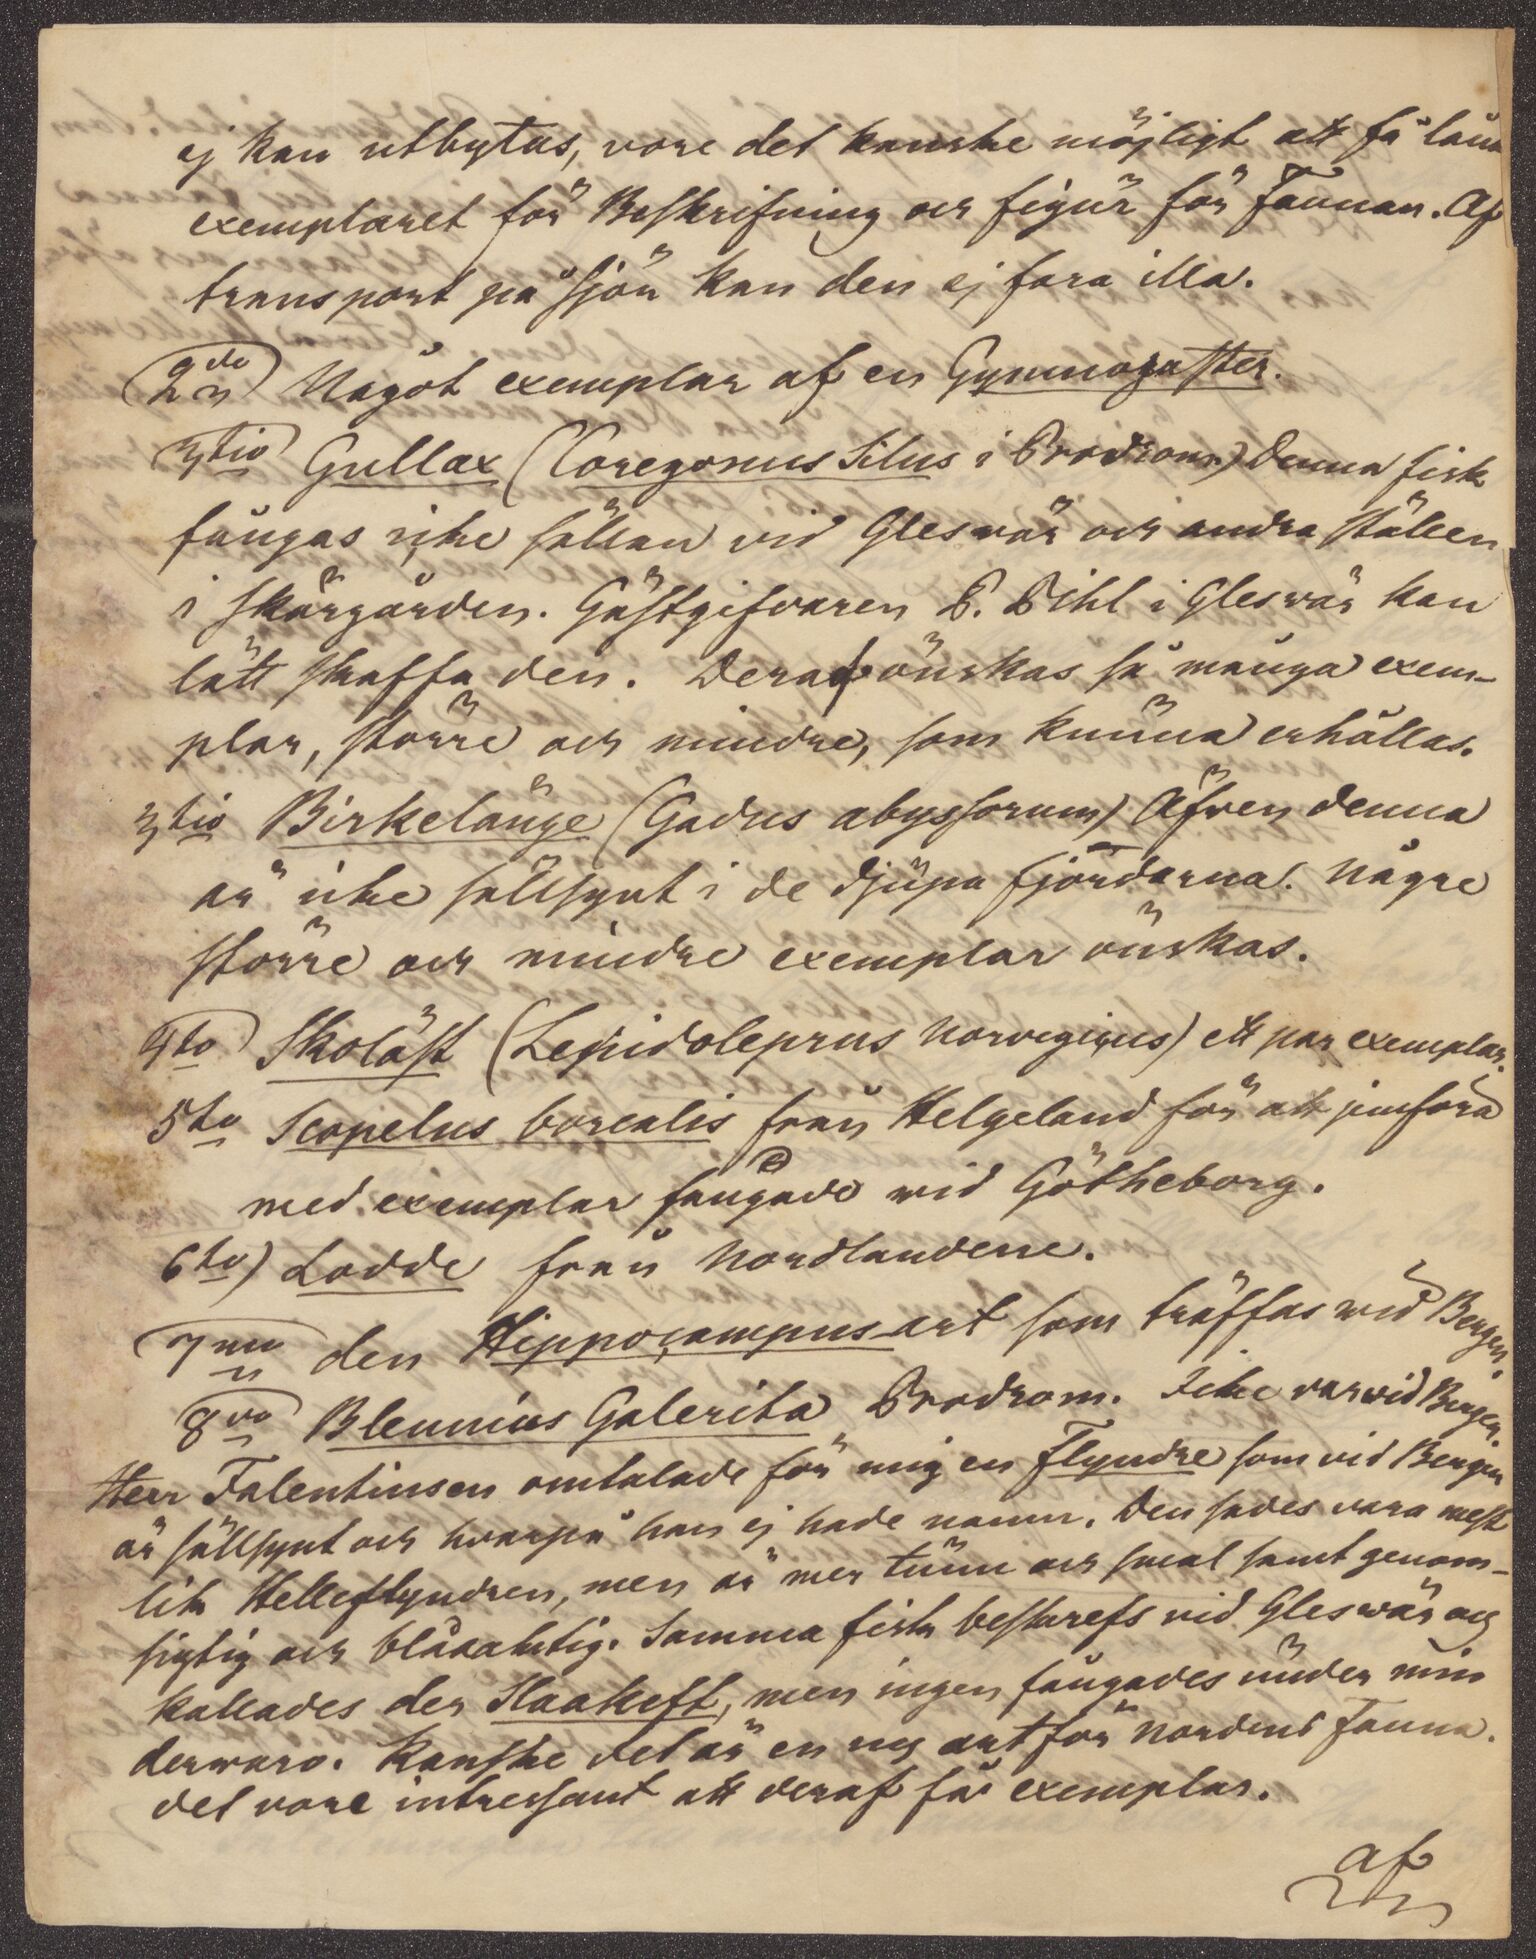 ej kan utbytas, vore det kanske möjligt att få låna
exemplaret för Beskrifning och figur för Faunan. Af
transport på sjön kan den ej fara illa.
2do Något exemplar af en Gymnogaster.
3tio Gullax (Coregonus Silus i Prodrom.) Denna fisk
fångas icke sällan vid Gleswär och andra ställen
i skärgården. Gästgifvaren P. Pihl i Gleswär kan
lätt skaffa den. Deraf önskas så många exem-
plar, större och mindre, som kunna erhållas.
3tio Birkelånge (Gadus abyssorum) Äfven denna
är icke sällsynt i de djupa fjordarna. Några
större och mindre exemplar önskas.
4to Skoläst (Lepidoleprus norvegicus) ett par exemplar.
5to Scopelus borealis från Helgeland för att jemföra
med exemplar fångade vid Götheborg.
6to) Lodde från Nordlandene.
7mo den Hippocampus-art som träffas vid Bergen.
8vo Blennius Galerita Prodrom. Icke rar vid Bergen.
Herr Falentinsen omtalade för mig en Flyndre som vid Bergen
är sällsynt och hvarpå han ej hade namn. Den sades vara mest
lik Helleflyndren, men är mer tunn och smal samt genom-
sigtig och blåaktig. Samma fisk beskrefs vid Gleswär och
kallades der Haakeft, men ingen fångades under min
dervaro. Kanske det är en ny art för Nordens Fauna.
det vore intressant att deraf få exemplar.
af